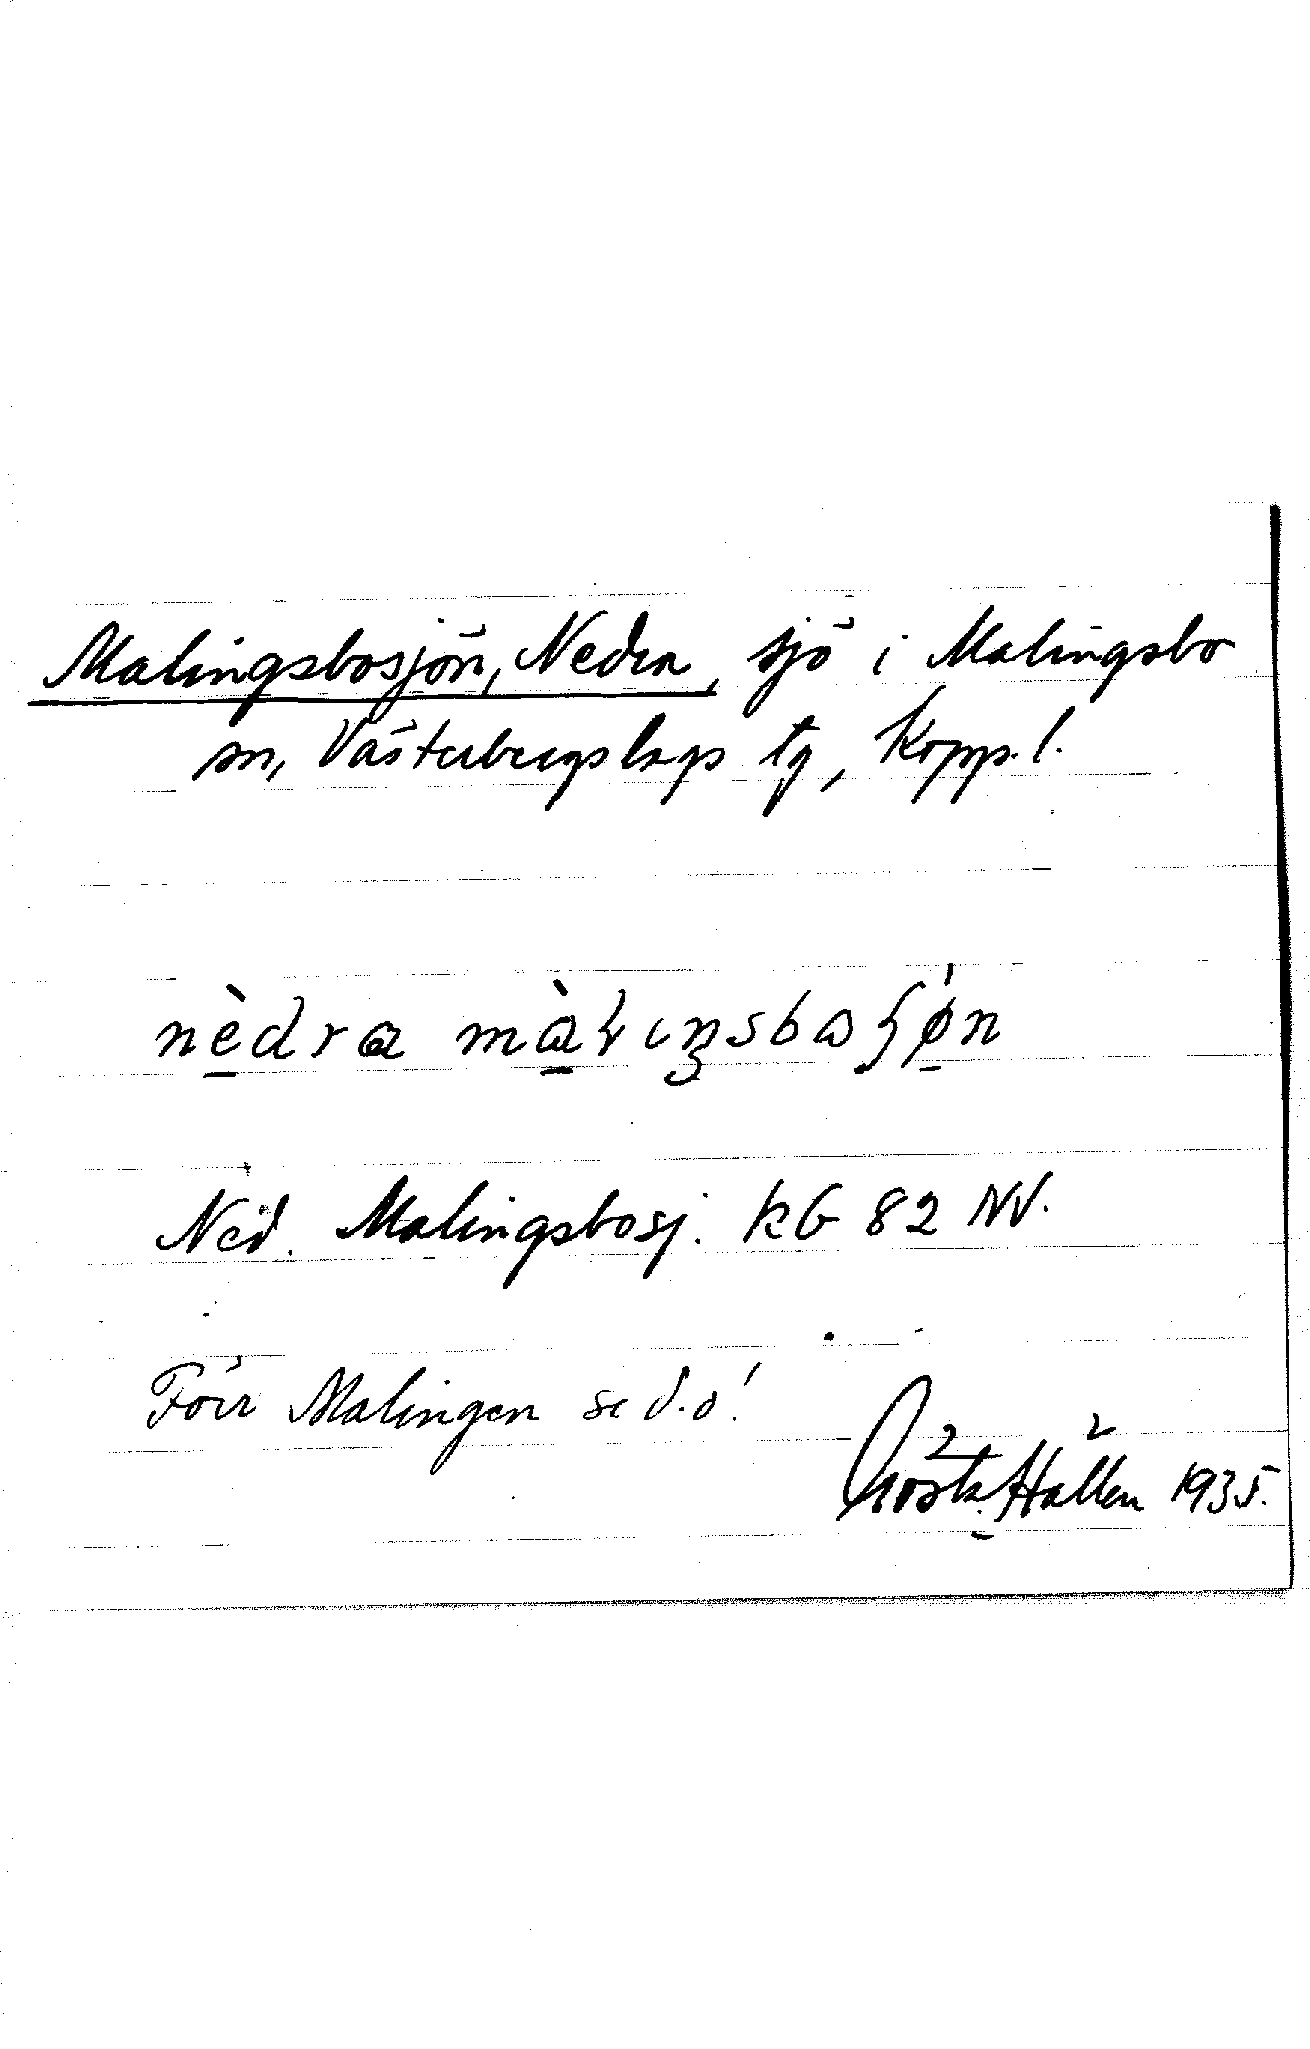 Malingsbosjön, Nedra, sjö i Malingsbo
sn, Västerbergslags tg, Kopp. l.
nèdra màłıŋsboʃǿn
Ned. Malingsbosj. KG 82 NV.
Förr Malingen se d.o!
Gösta Hallen 1935.